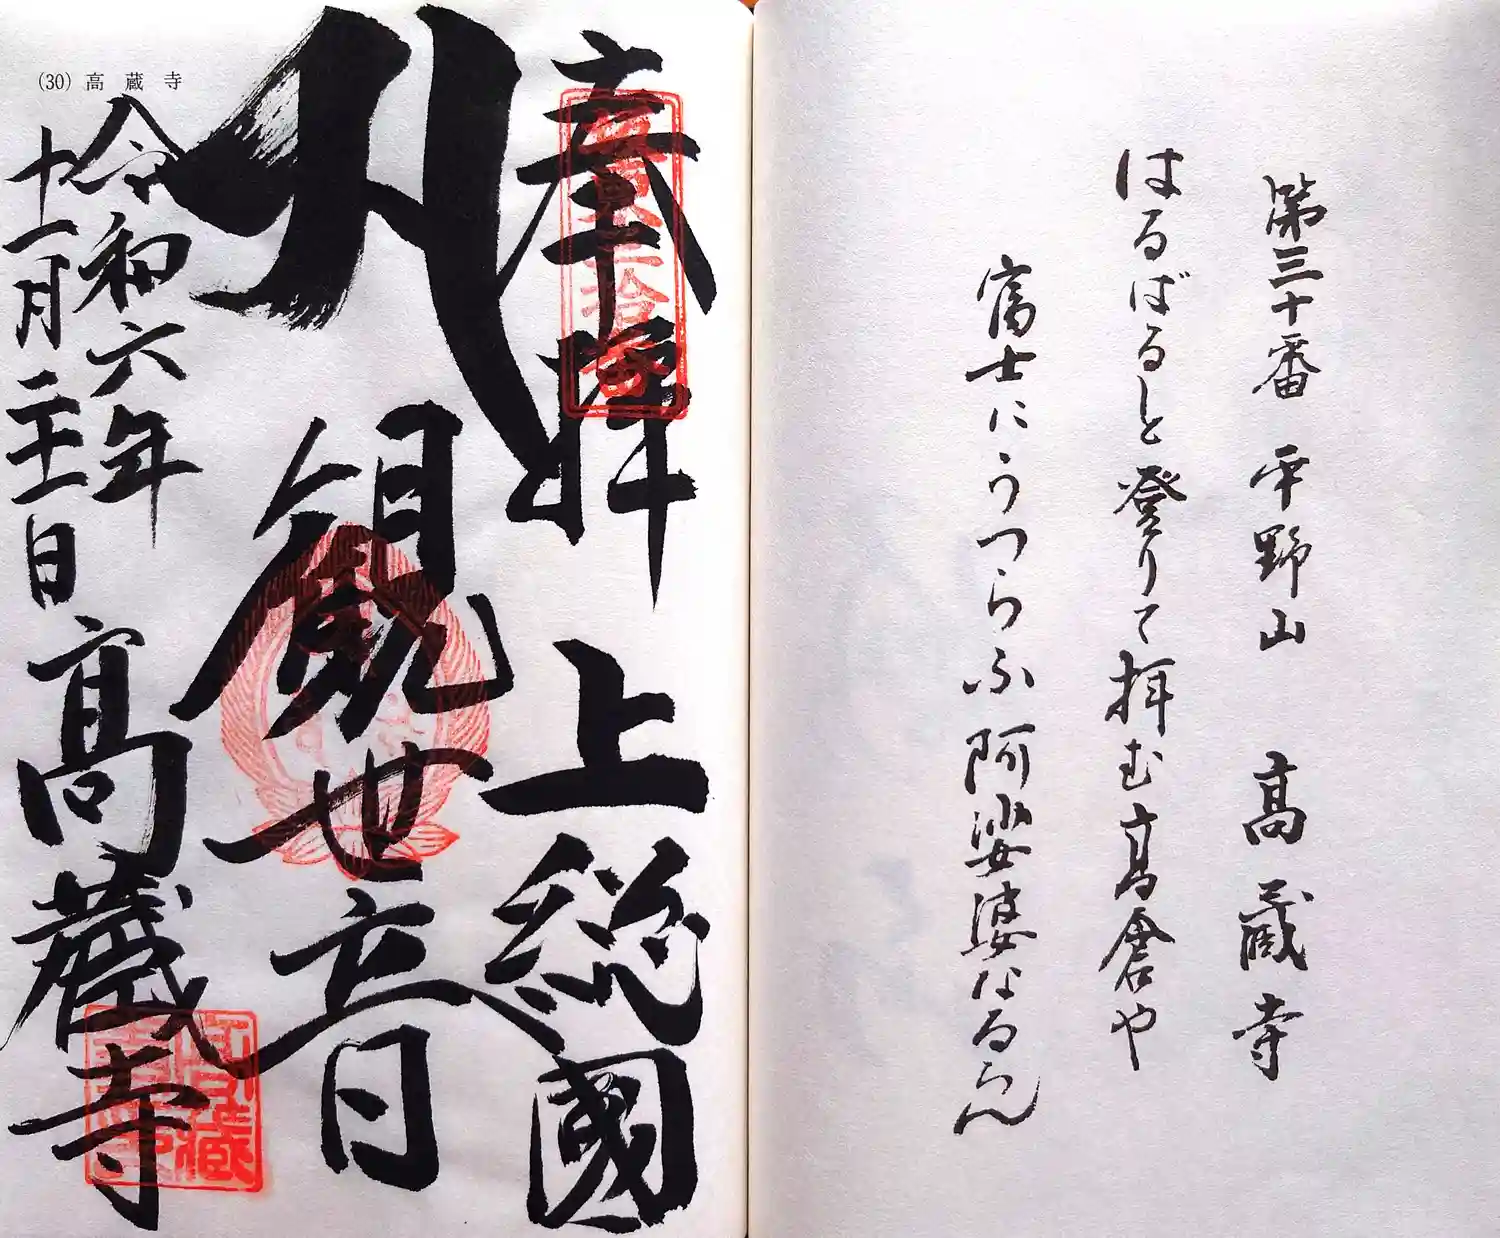 第三十番 平野山 高蔵寺
はるばると登りて拝む高倉や
富士にうつらふ阿娑婆なるらん
(30) 高蔵寺
奉拝 上総國
観世音
令和六年
十一月二十一日 高蔵寺